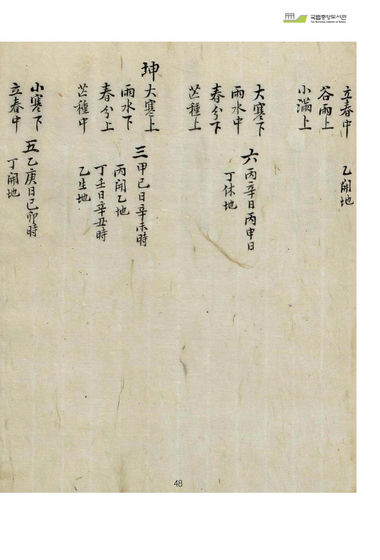 국립중앙도서관
立春中 乙開地
谷雨上
小滿上
大寒下 六丙辛日丙申日
雨水中 丁休地
春分下
芒種上
坤大寒上 三甲己日辛未時
雨水下 丙開乙地
春分上 丁壬日辛丑時
芒種中 乙生地
小寒下 五乙庚日己卯時
立春中 丁開地
48